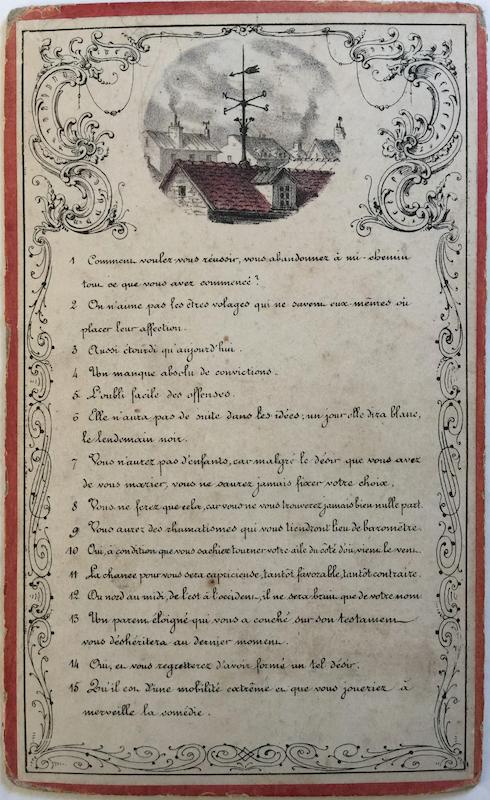 1 Comment voulez-vous réussir, vous abandonnez à mi-chemin
tout ce que vous avez commencé?
2 On n'aime pas les êtres volages qui ne savent eux-mêmes où
placer leur affection.
3 Aussi étourdi qu'aujourd'hui.
4 Un manque absolu de convictions.
5 L'oubli facile des offenses.
6 Elle n'aura pas de suite dans les idées; un jour elle dira blanc,
le lendemain noir.
7 Vous n'aurez pas d'enfants, car malgré le désir que vous avez
de vous marier, vous ne saurez jamais fixer votre choix.
8 Vous ne ferez que cela, car vous ne vous trouverez jamais bien nulle part.
9 Vous aurez des rhumatismes qui vous tiendront lieu de baromètre.
10 Oui, à condition que vous sachiez tourner votre aile du côté d'où vient le vent.
11 La chance pour vous sera capricieuse, tantôt favorable, tantôt contraire.
12 Du nord au midi, de l'est à l'occident, il ne sera bruit que de votre nom
13 Un parent éloigné qui vous a couché sur son testament
vous déshéritera au dernier moment.
14 Oui, et vous regretterez d'avoir formé un tel désir.
15 Qu'il est d'une mobilité extrême et que vous joueriez à
merveille la comédie.